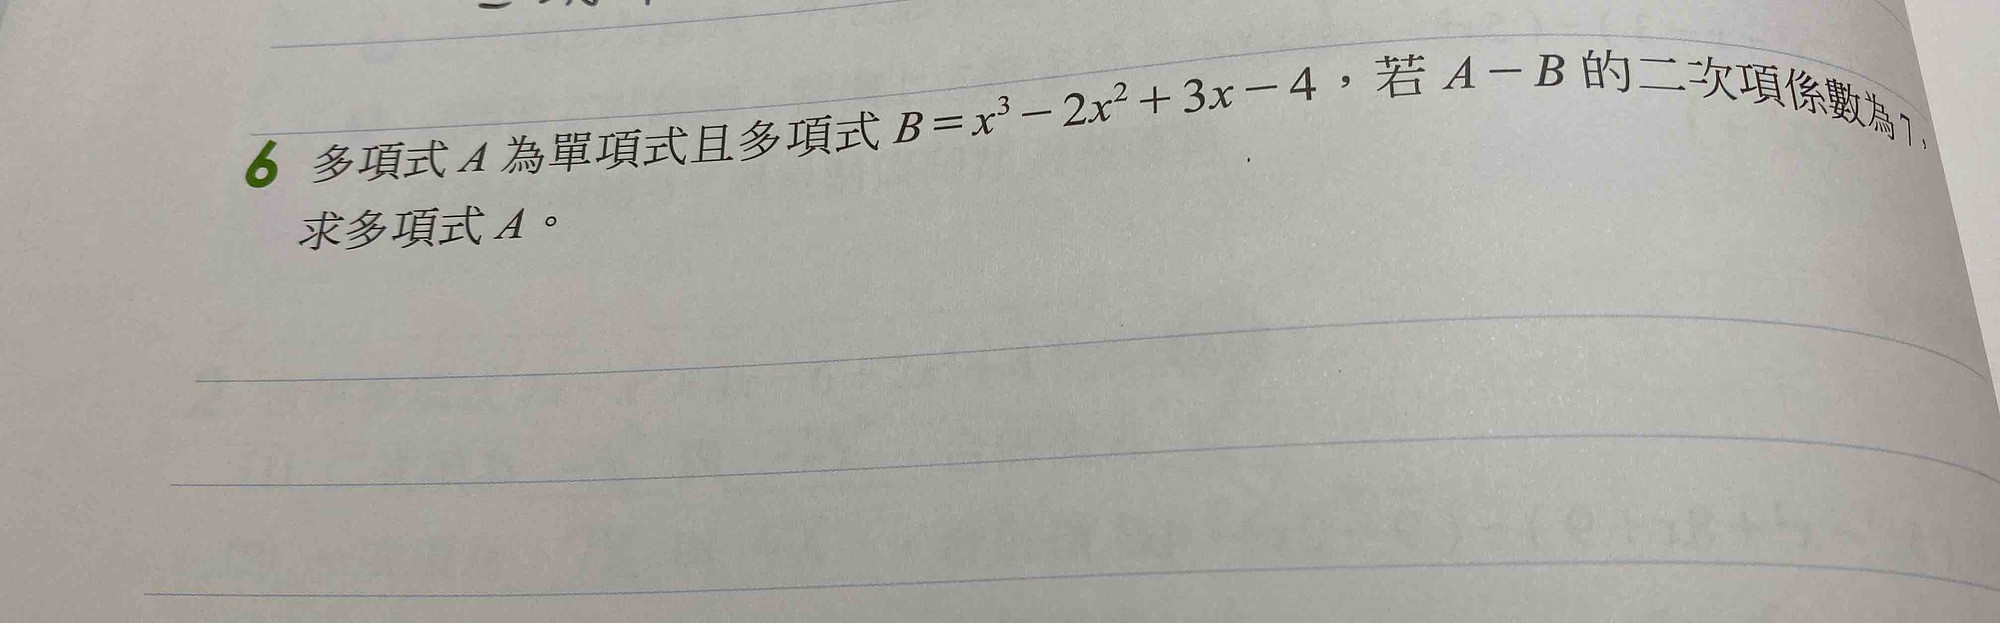 6 多項式 A 為單項式且多項式 B=x³−2x²+3x−4,若 A−B 的二次項係數為7,
求多項式 A。